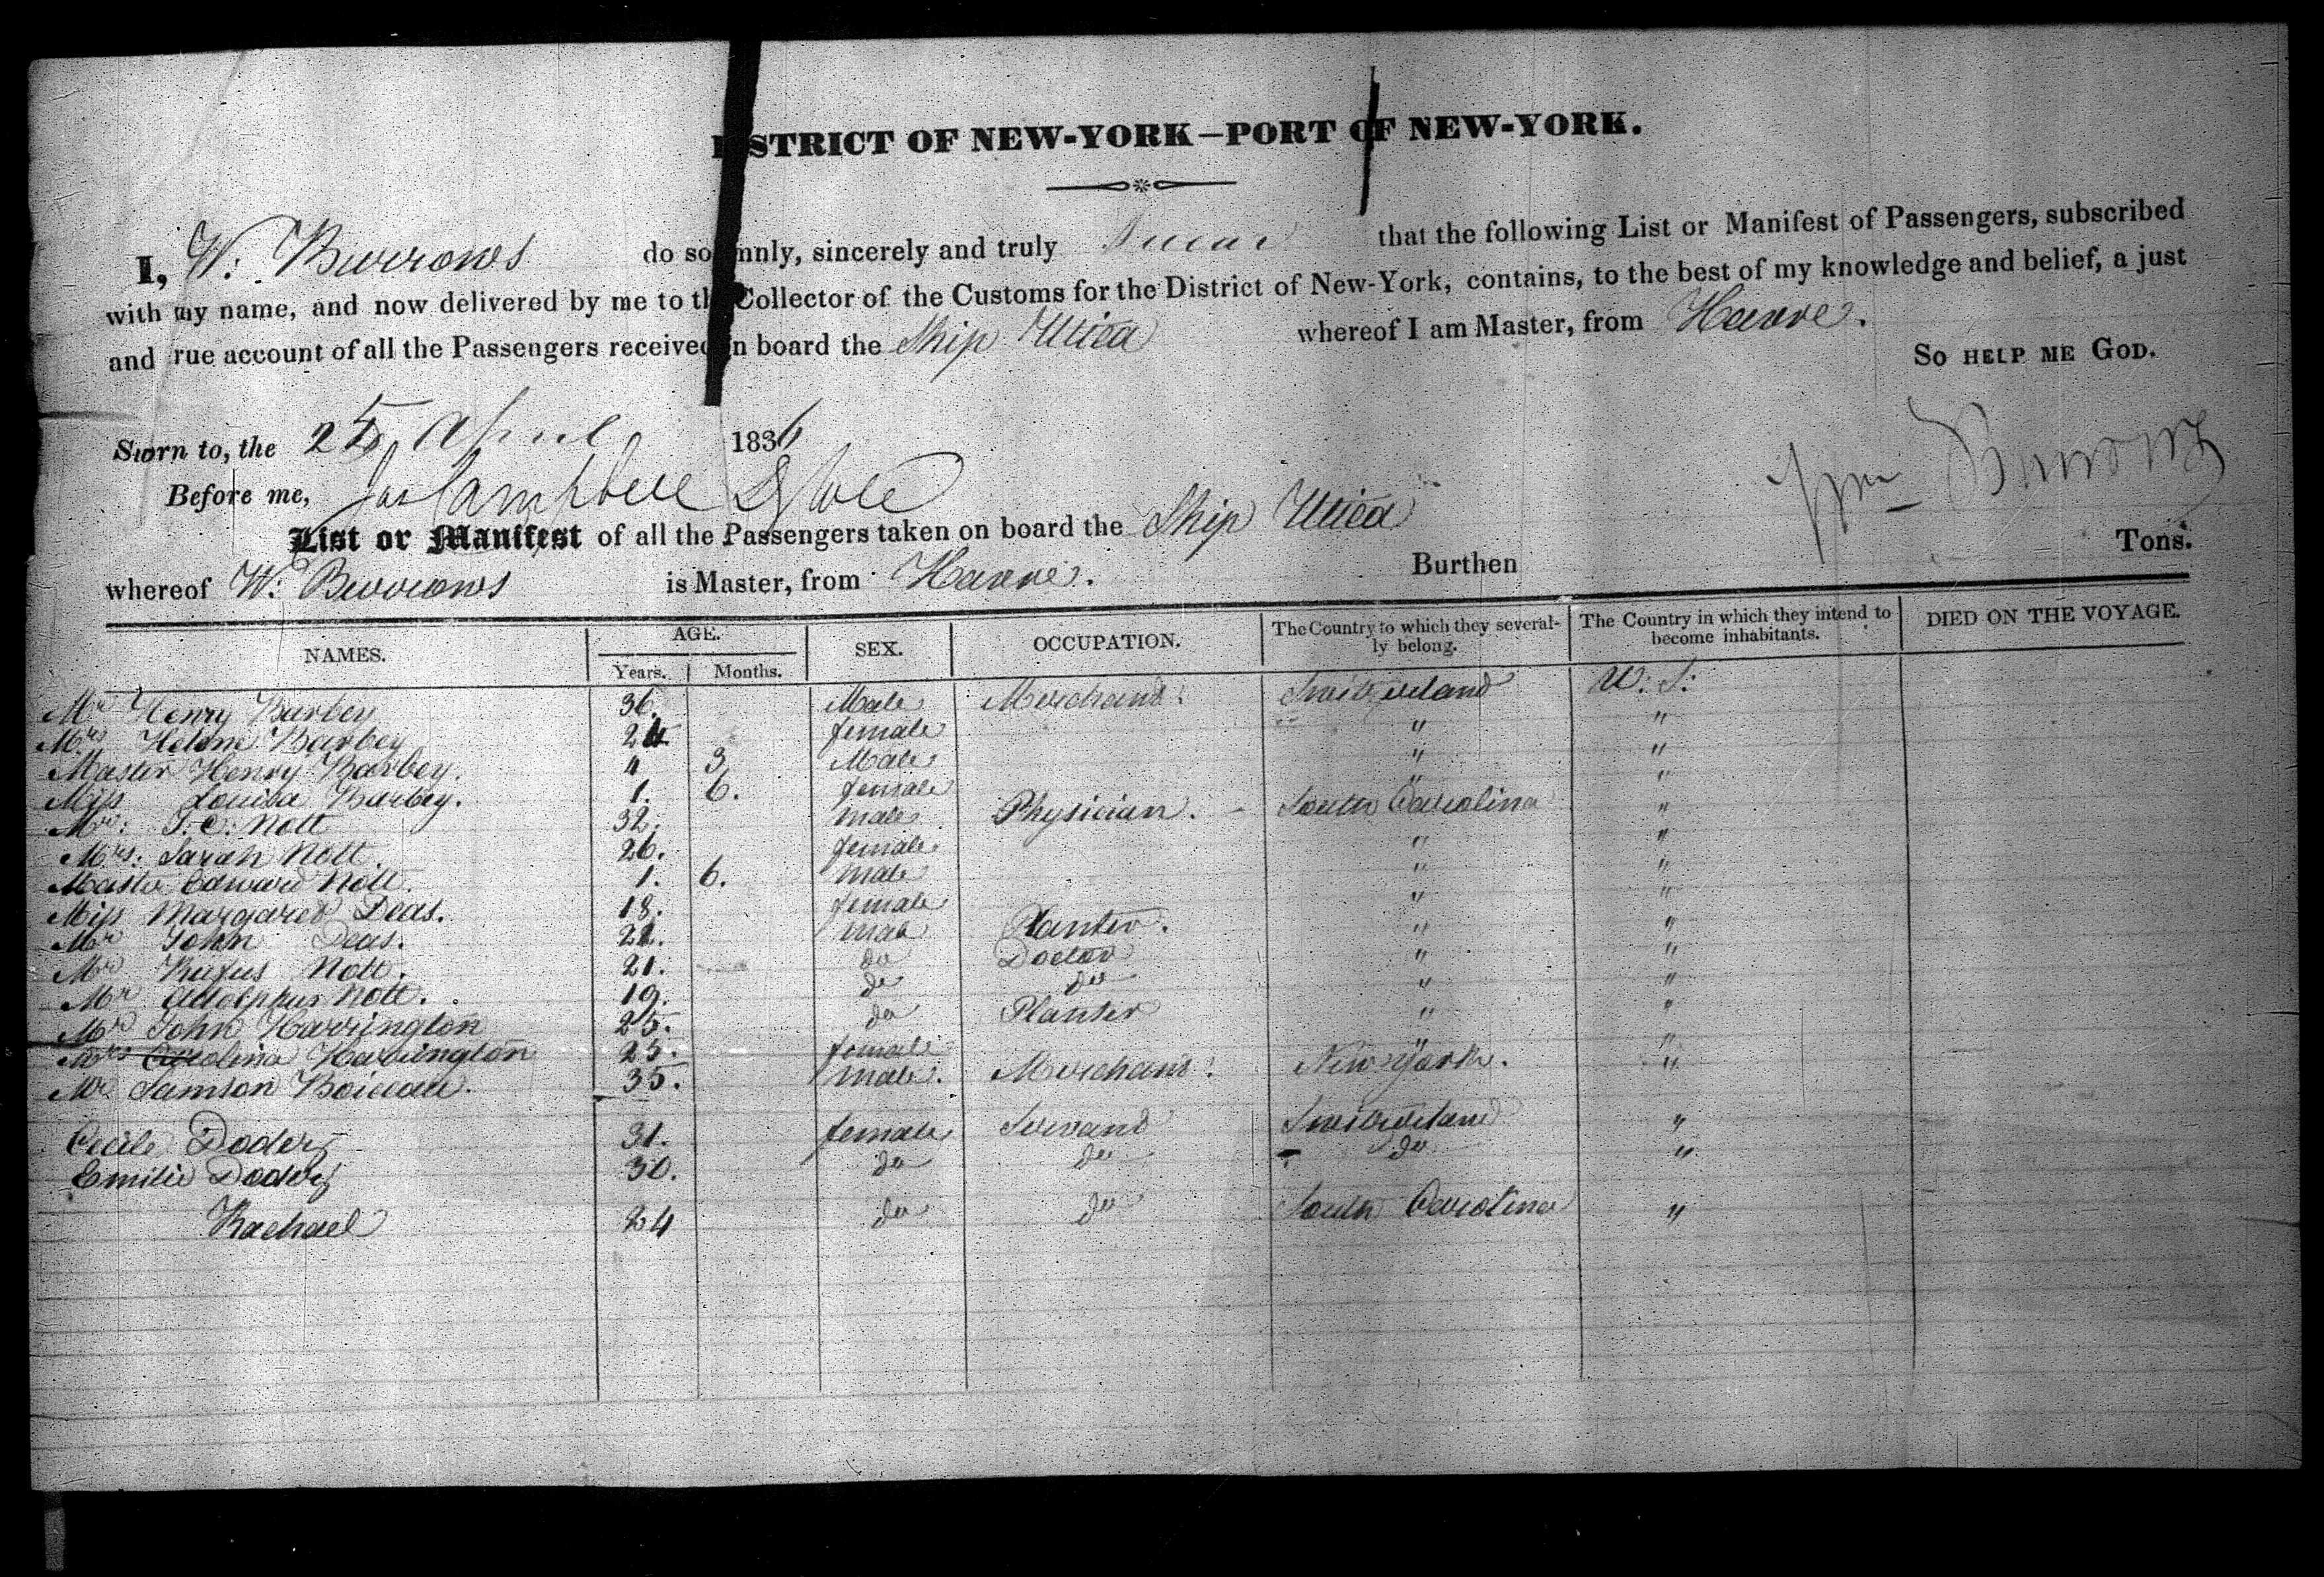 DISTRICT OF NEW-YORK—PORT OF NEW-YORK.
I, W: Burrows do solemnly, sincerely and truly swear that the following List or Manifest of Passengers, subscribed
with my name, and now delivered by me to the Collector of the Customs for the District of New-York, contains, to the best of my knowledge and belief, a just
and rue account of all the Passengers received on board the Ship Utica whereof I am Master, from Havre.
So HELP ME GOD.
Sworn to, the 25 April 1836
Before me, Campbell Wm Burrows
List or Manifest of all the Passengers taken on board the Ship Utica
whereof W: Burrows is Master, from Havre. Burthen Tons.
NAMES. AGE. Years. Months. SEX. OCCUPATION. The Country to which they several-ly belong. The Country in which they intend to become inhabitants. DIED ON THE VOYAGE.
Mr Henry Barbey 36. Male Merchand: Switzerland U: S:
Mrs Helene Barbey 24 female " "
Master Henry Barbey. 4 3 Male " "
Miss Louisa Barbey. 1. 6. female " "
Mr: J: C: Nott 32. male Physician. South Carolina "
Mrs: Sarah Nott. 26. female. " "
Master Edward Nott. 1. 6. male " "
Miss Margaret Deas. 18. female " "
Mr John Deas. 21. male Planter. " "
Mr Rufus Nott. 21. do Doctor " "
Mr Adolphus Nott. 19. do do " "
Mr John Harrington 25. do Planter " "
Mrs Carolina Harrington 25. female " "
Mr Samson 35. male. Merchand: New York. "
Cecile Doderz 31. female Servand Switzerland "
Emilie Doderz 30. do do do "
Rachael 24 do do South Carolina "